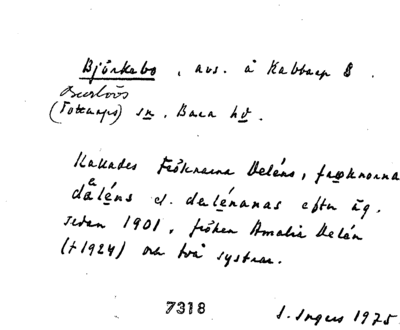 Björkebo, avs. å Kabbarp 8.
Burlövs
(Tottarps) sn, Bara hd.
Kallades Fröknarna Deléns, fröknorna
dåléns el. delénanas efter äg.
sedan 1901, fröken Amalia Delén
(†1924) och två systrar.
7318
S. Ingers 1975.